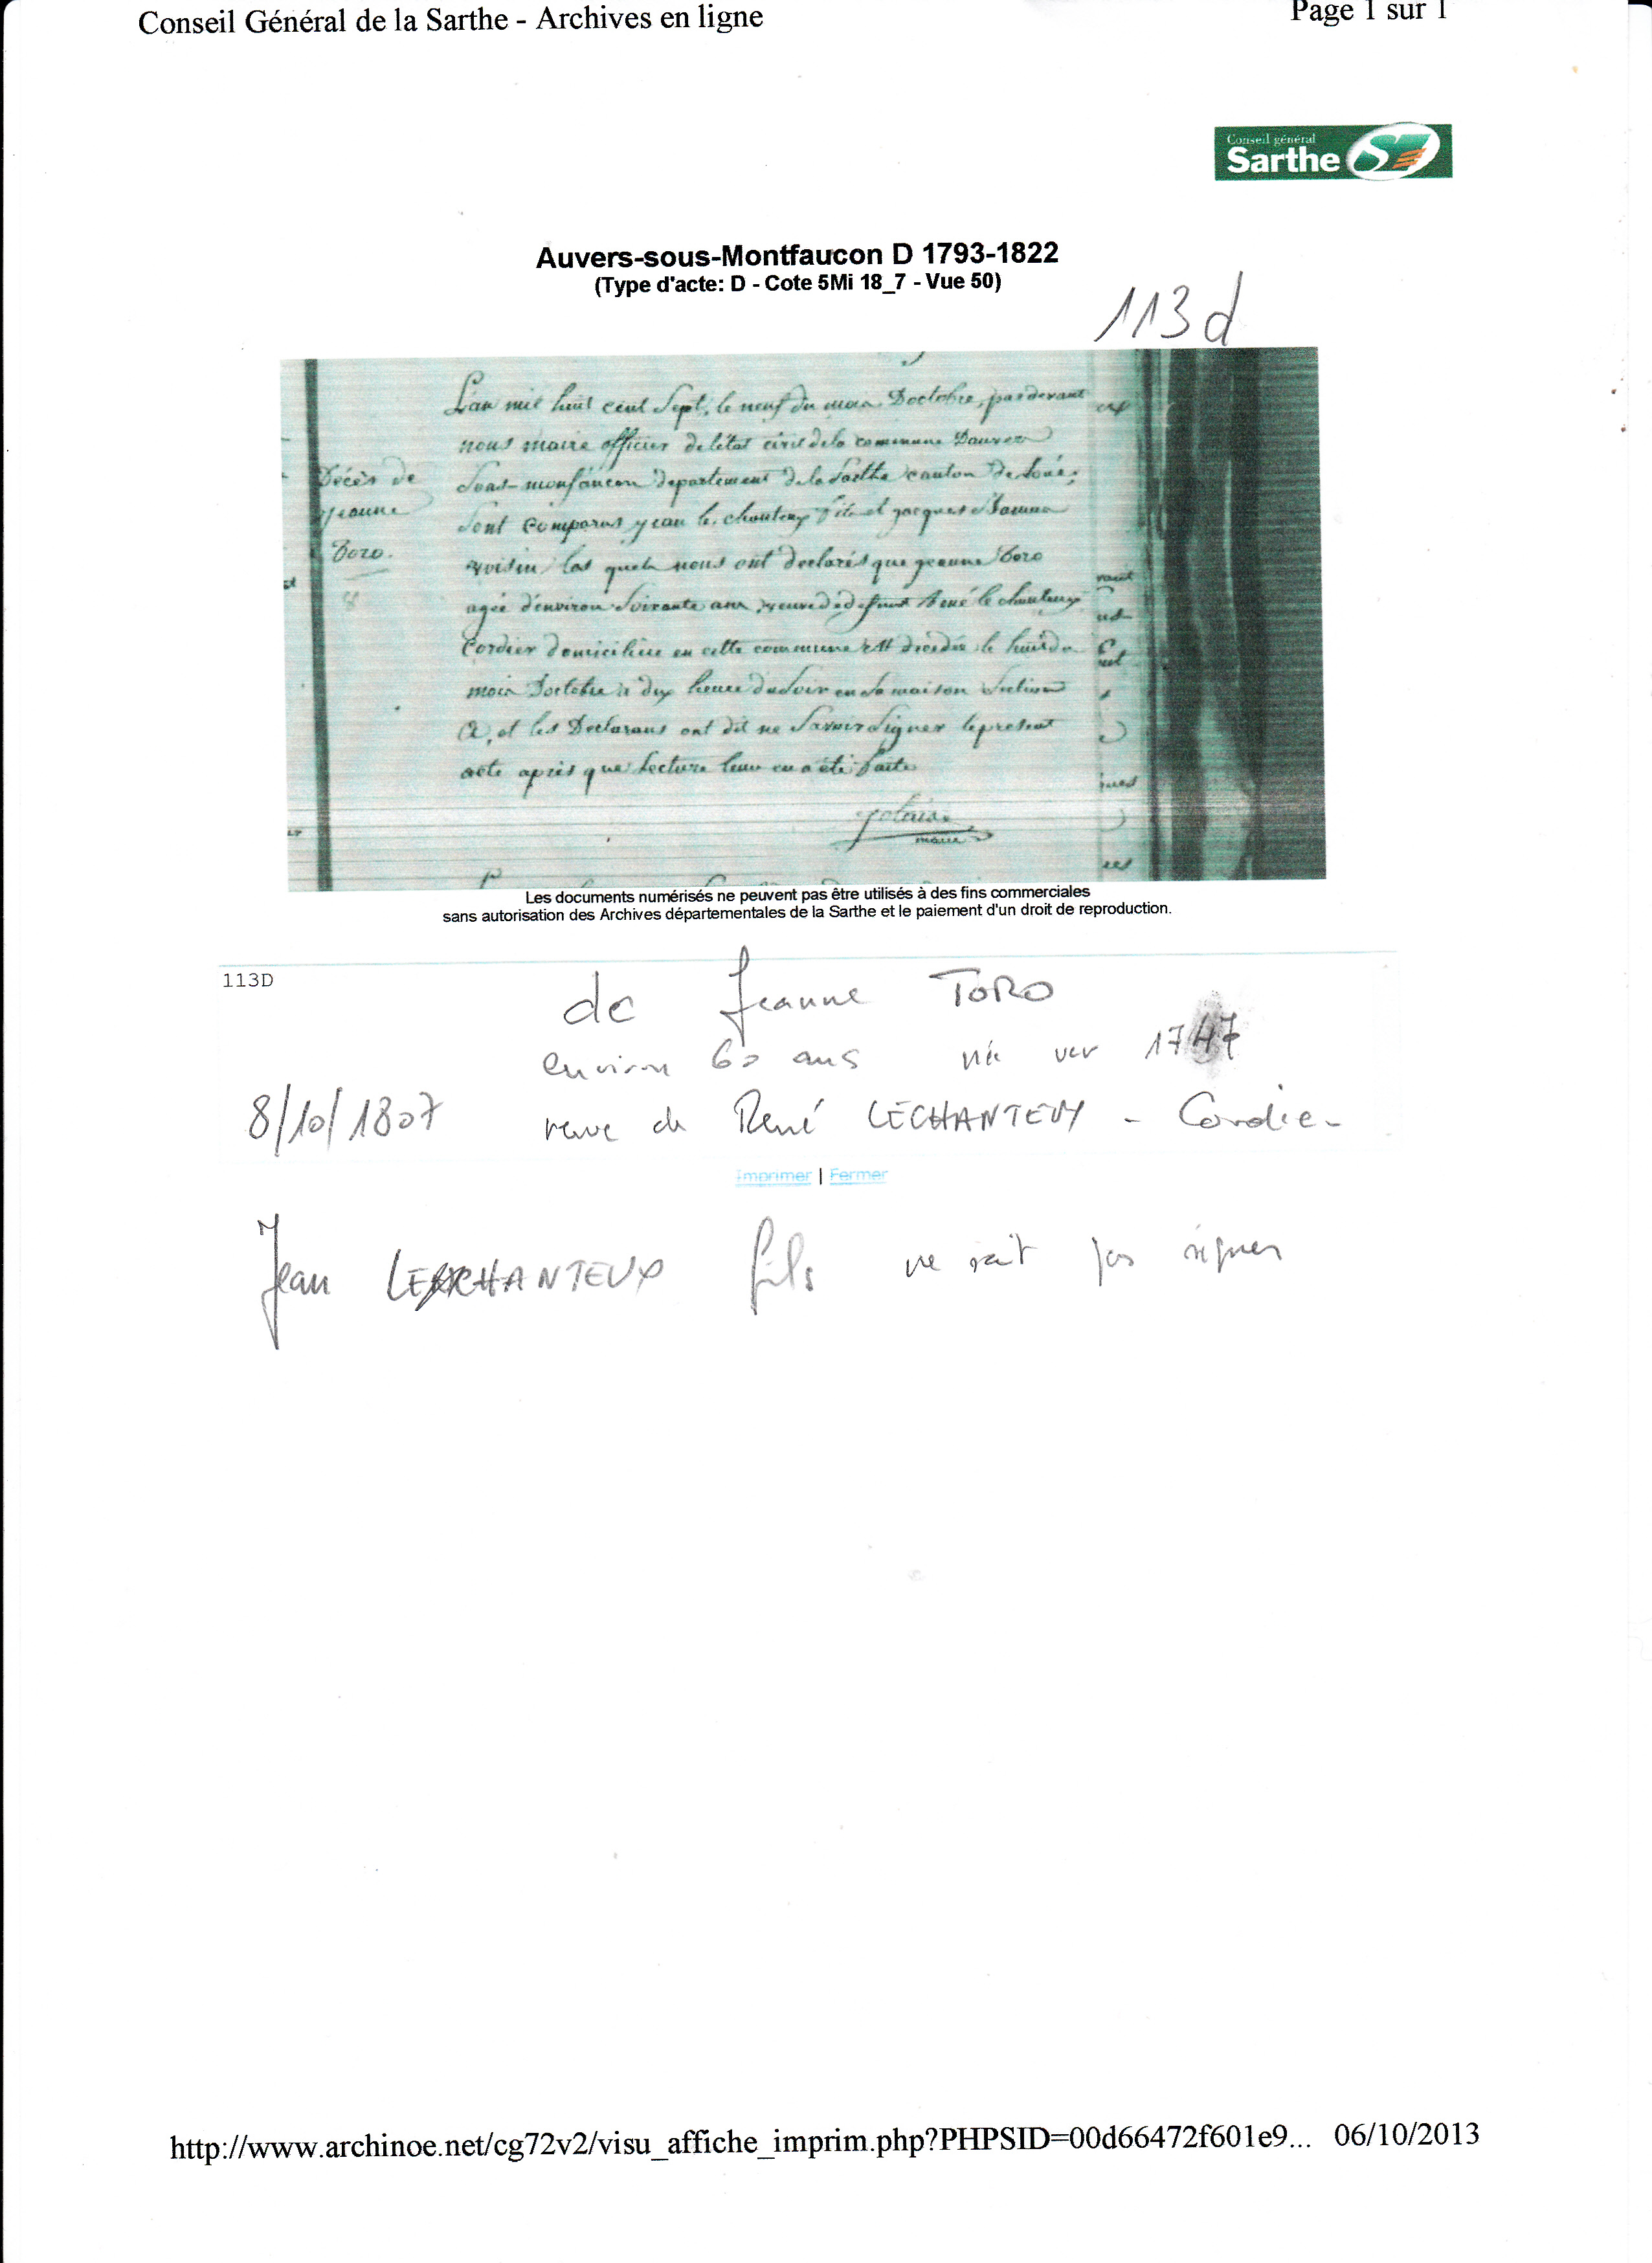 Conseil Général de la Sarthe - Archives en ligne
Page 1 sur 1
Conseil général
Sarthe
Auvers-sous-Montfaucon D 1793-1822
(Type d'acte: D - Cote 5Mi 18_7 - Vue 50)
113d
L'an mil huit cent Sept, le neuf du mois Doctobre, pardevant
nous maire officier de létat civil dela commune Dauvers
Sous-monfaucon departement dela Sarthe canton De Loué;
Sont Comparus jean le chanteux fils et jacques
voisin les quels nous ont declarés que jeanne Toro
agée d'environ Soixante ans, veuve de defunt René le chanteux
Cordier domiciliée en cette commune est décédée le huit du
mois Doctobre à dix heure du Soir en Sa maison Section
A, et les Declarans ont dit ne Savoir Signer le present
acte après que Lecture leur en a été faite
maire
Décès de
jeanne
Toro.
8
Les documents numérisés ne peuvent pas être utilisés à des fins commerciales
sans autorisation des Archives départementales de la Sarthe et le paiement d'un droit de reproduction.
113D
dc Jeanne TORO
environ 60 ans née ver 1747
8/10/1807 veuve de René LECHANTEUX - Cordier
Imprimer | Fermer
Jean LECHANTEUX fils ne sait pas signer
http://www.archinoe.net/cg72v2/visu_affiche_imprim.php?PHPSID=00d66472f601e9... 06/10/2013